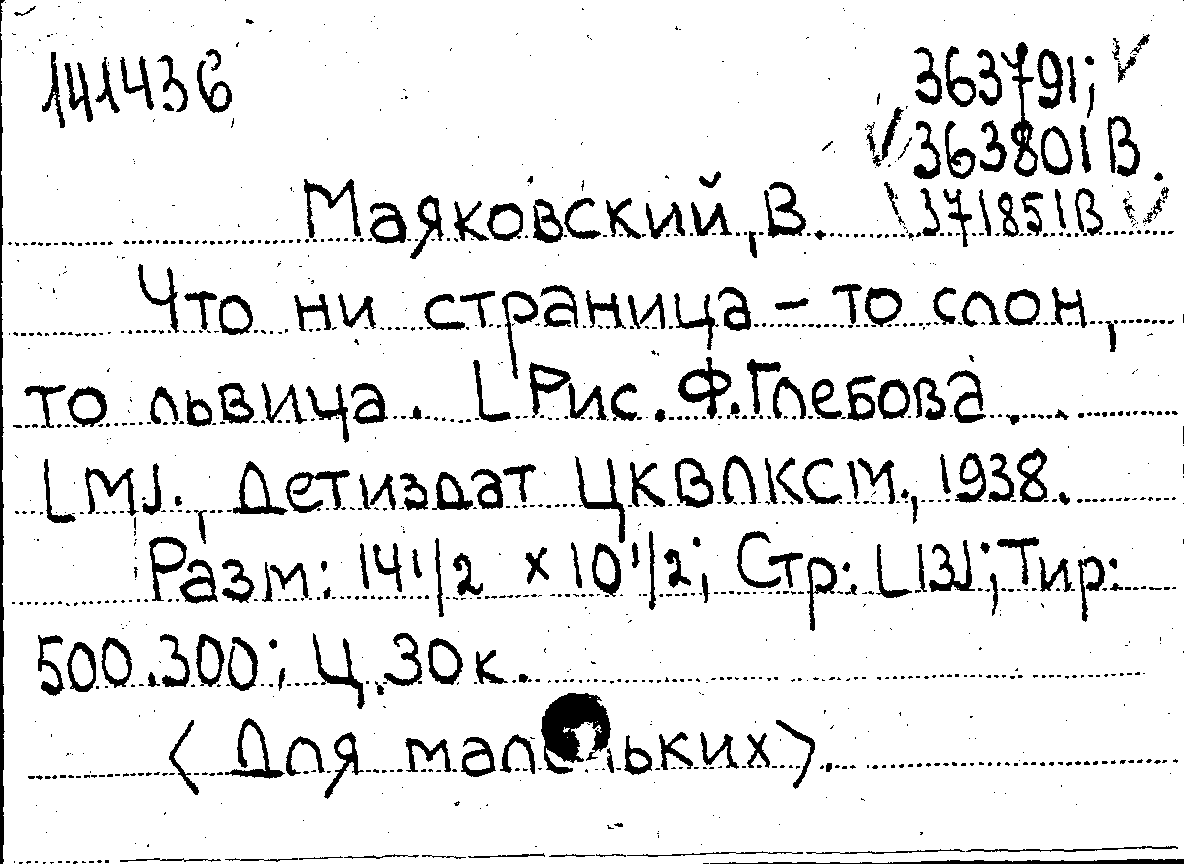 141436 363791; ✓
✓ 363801 В.
Маяковский, В. 371851В ✓
Что ни страница – то слон,
то львица. [Рис. Ф. Глебова.
[М]., Детиздат ЦКВЛКСМ., 1938.
Разм: 14 1/2 х 10 1/2; Стр: [13]; Тир:
500.300; Ц. 30 к.
<Для маленьких>.